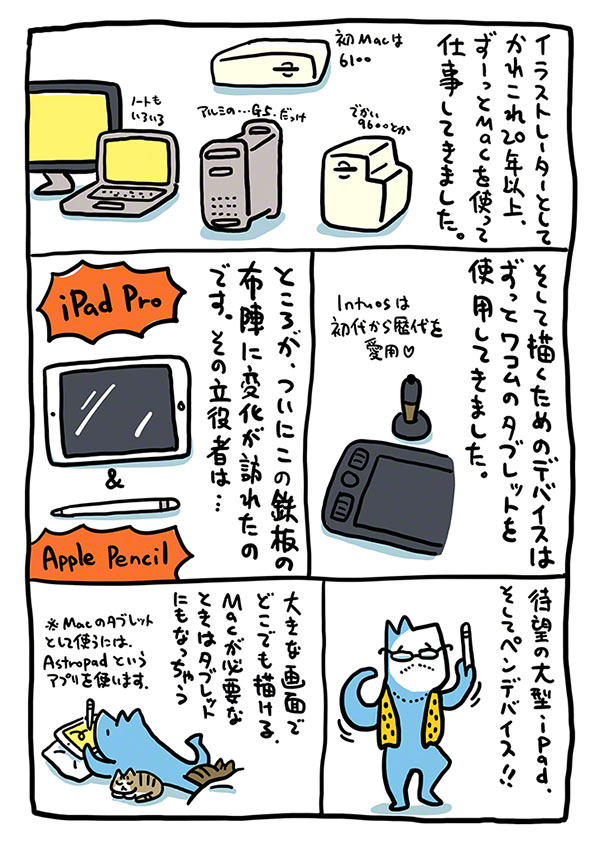 イラストレーターとして
かれこれ20年以上、
ずーっとMacを使って
仕事してきました。
初Macは
6100
でかい
9600とか
アルミの…G5.だっけ
ノートも
いろいろ
そして描くためのデバイスは
ずっとワコムのタブレットを
使用してきました。
Intuosは
初代から歴代を
愛用♡
ところが、ついにこの鉄板の
布陣に変化が訪れたの
です。その立役者は…
iPad Pro
&
Apple Pencil
待望の大型iPad、
そしてペンデバイス!!
大きな画面で
どこでも描ける、
Macが必要な
ときはタブレット
にもなっちゃう
※Macのタブレット
として使うには、
Astropadという
アプリを使います。